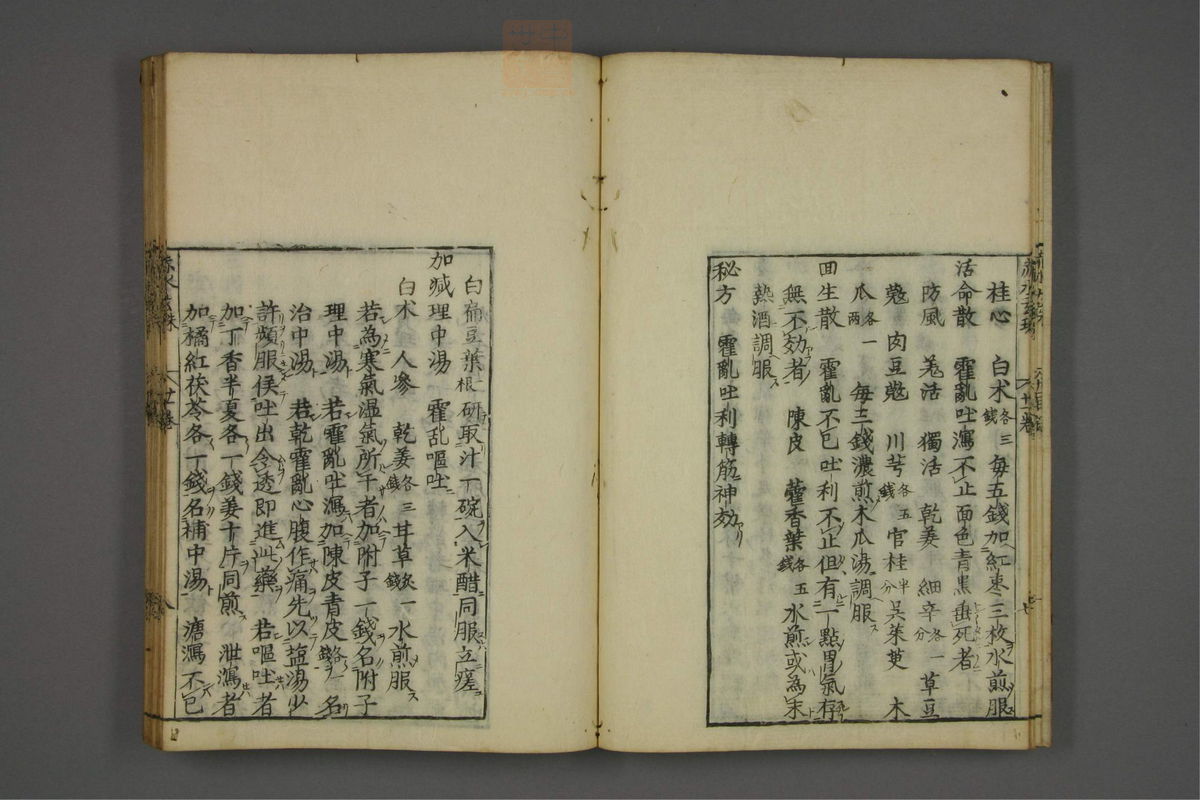 桂心 白术各三錢 每五錢加紅枣三枚水煎服
活命散 霍亂吐瀉不止面色青黒垂死者
防風 羗活 獨活 乾姜 細辛各一分 草豆
蔲 肉豆蔲 川芎各五錢 官桂半分 呉茱萸 木
瓜各一兩 每二錢濃煎木瓜湯調服
回生散 霍亂不已吐利不止但有一點胃氣存
無不効者 陳皮 藿香葉各五錢 水煎或為末
熱酒調服
秘方 霍亂吐利轉筋神効
白扁豆葉根研取汁一碗入米醋同服立瘥
加减理中湯 霍乱嘔吐
白术 人參 乾姜各三錢 甘草炙一錢 水煎服
若為寒氣濕氣所干者加附子一錢名附子
理中湯 若霍亂吐瀉加陳皮青皮各一錢名
治中湯 若乾霍亂心腹作痛先以塩湯少
許頻服俟吐出令透即進此藥 若嘔吐者
加丁香半夏各一錢姜十片同煎 泄瀉者
加橘紅茯苓各一錢名補中湯 溏瀉不已